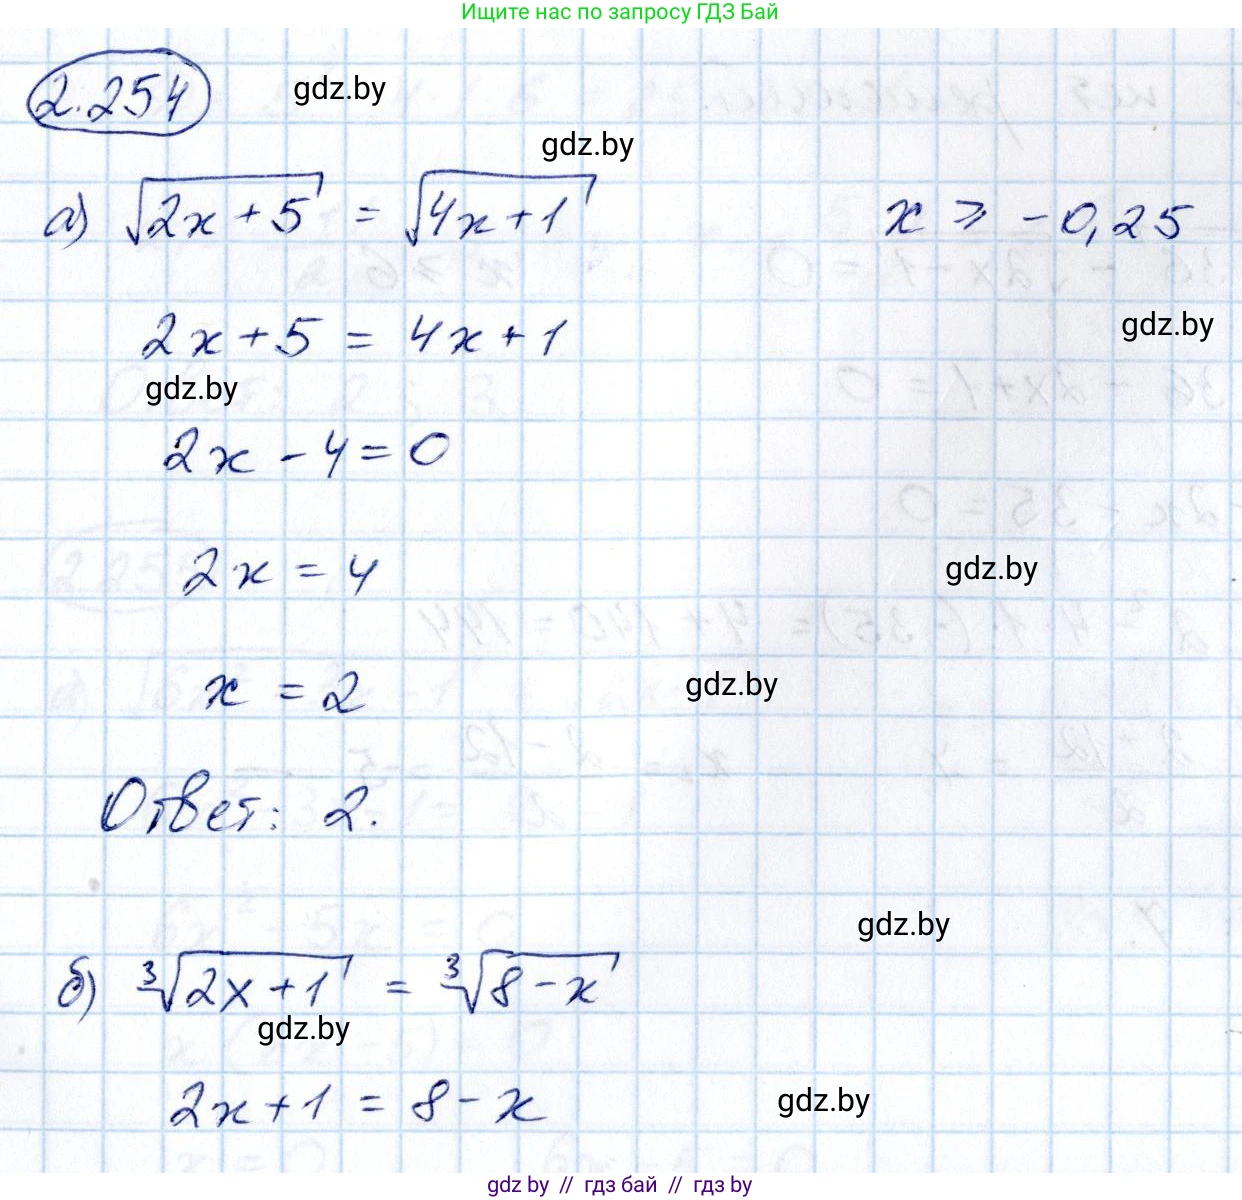 Ищите нас по запросу ГДЗ Бай
2.254 gdz.by
gdz.by
а) √(2x+5) = √(4x+1) x ⩾ -0,25
gdz.by
2x+5 = 4x+1
gdz.by
2x - 4 = 0
2x = 4 gdz.by
x = 2 gdz.by
Ответ: 2.
gdz.by
б) ∛(2x+1) = ∛(8-x)
gdz.by
2x+1 = 8-x gdz.by
gdz by // гдз бай // gdz by